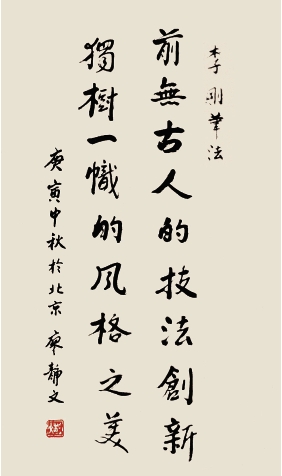 李刚筆法
前無古人的技法創新
獨樹一幟的风格之美
庚寅中秋於北京 廖静文